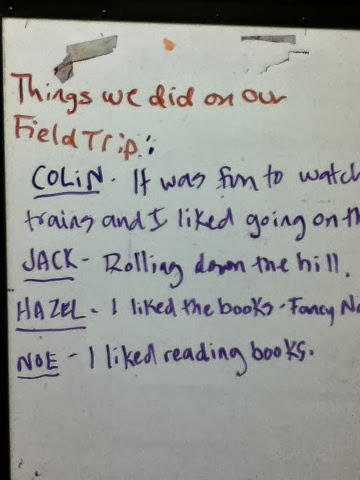 Things we did on our
Field Trip:
COLIN. It was fun to watch
trains and I liked going on th
JACK - Rolling down the hill.
HAZEL - I liked the books - Fancy N
NOE - I liked reading books.